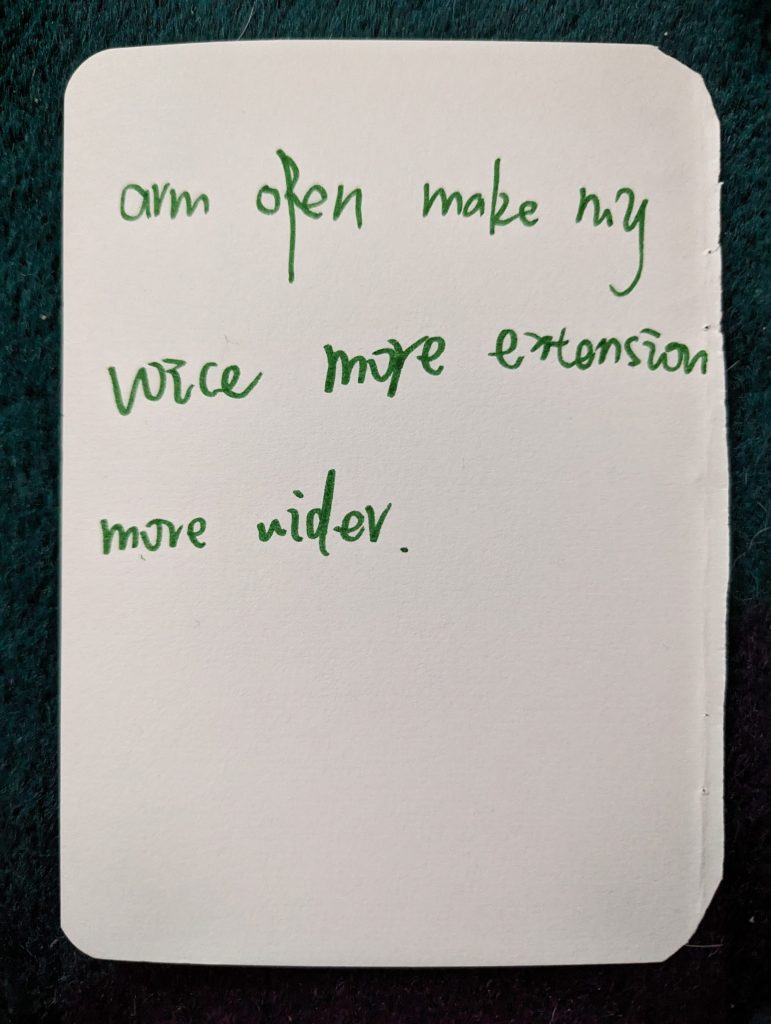 arm open make my
voice more extension
more wider.